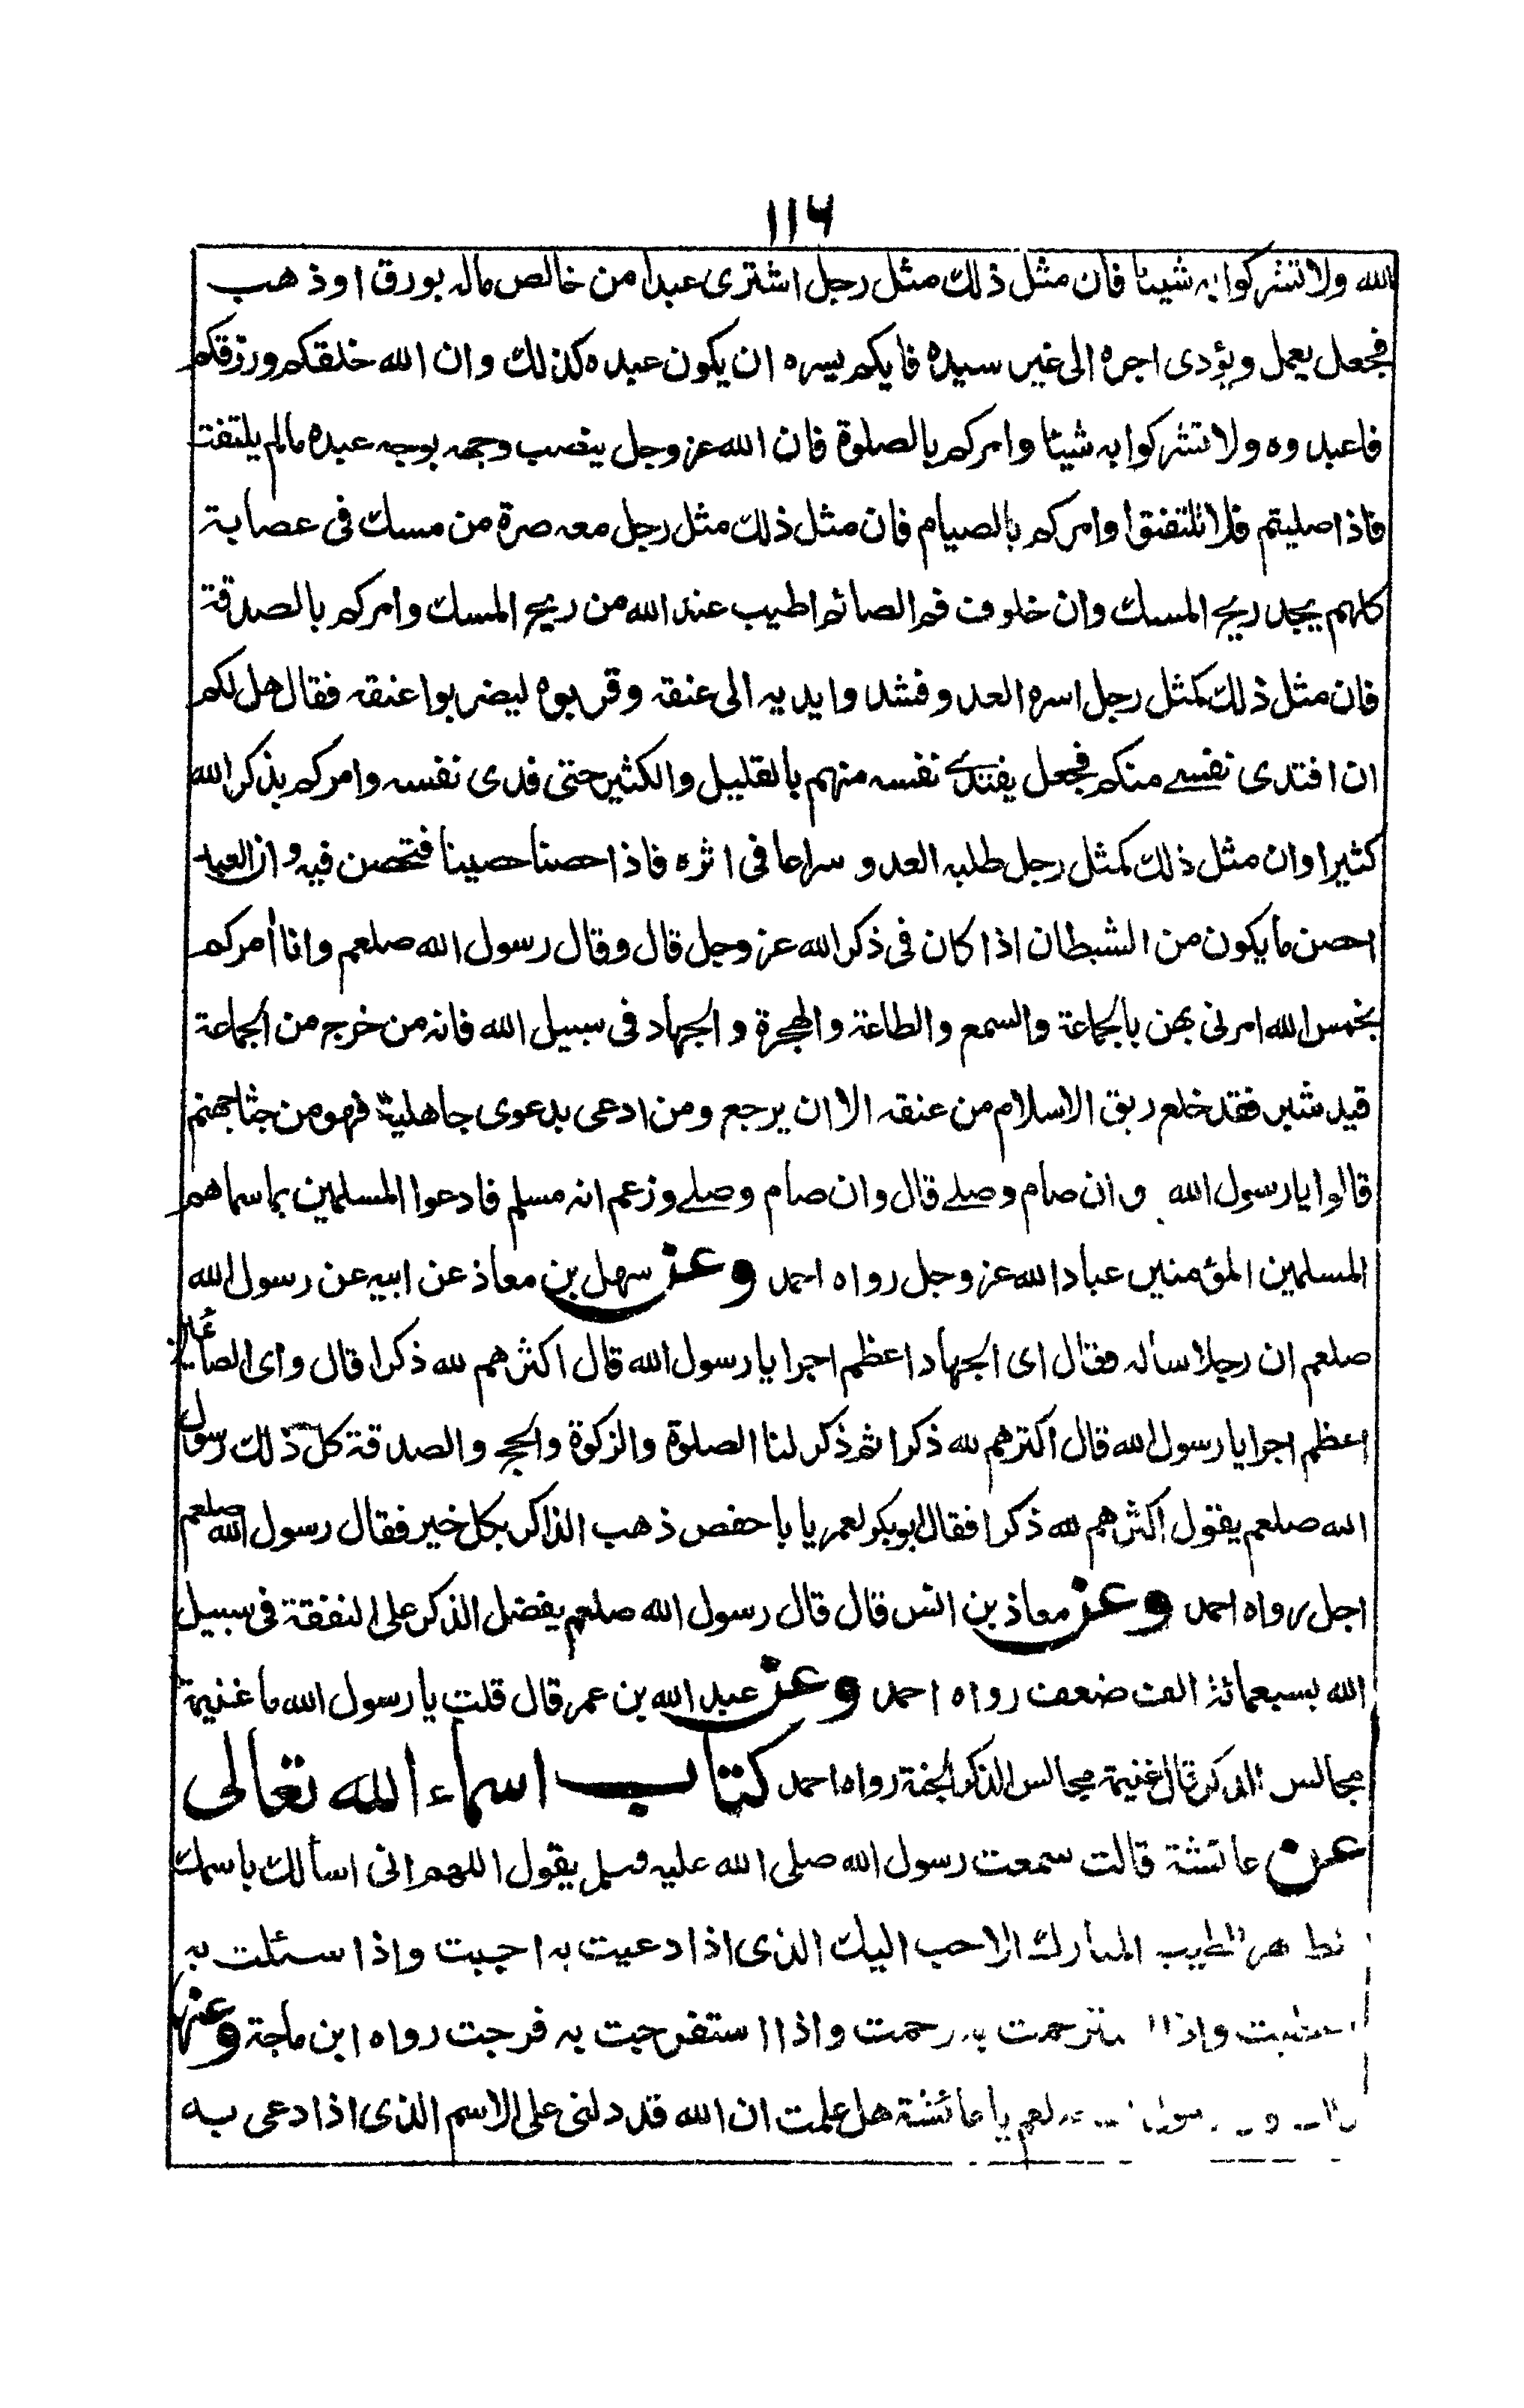 ١١٦
الله ولا تشركوا به شيئا فان مثل ذلك مثل رجل اشترى عبدا من خالص ماله بورق او ذهب
فجعل يعمل ويؤدى اجره الى غير سيده فايكم يسره ان يكون عبده كذلك وان الله خلقكم ورزقكم
فاعبدوه ولا تشركوا به شيئا وامركم بالصلوة فان الله عز وجل ينصب وجهه بوجه عبده مالم يلتفت
فاذا صليتم فلا تلتفتوا وامركم بالصيام فان مثل ذلك مثل رجل معه صرة من مسك فى عصابة
كلهم يجد ريح المسك وان خلوف فم الصائم اطيب عند الله من ريح المسك وامركم بالصدقة
فان مثل ذلك كمثل رجل اسره العدو فشدوا يديه الى عنقه وقربوه ليضربوا عنقه فقال هل لكم
ان افتدى نفسے منكم فجعل يفتدے نفسه منهم بالقليل والكثير حتى فدى نفسه وامركم بذكر الله
كثيرا وان مثل ذلك كمثل رجل طلبه العدو سراعا فى اثره فاذا حصنا حصينا فتحصن فيه وان العبد
احصن ما يكون من الشيطان اذا كان فى ذكر الله عز وجل قال وقال رسول الله صلعم وانا أمركم
بخمس الله امرنى بهن بالجماعة والسمع والطاعة والهجرة والجهاد فى سبيل الله فانه من خرج من الجماعة
قيد شبر فقد خلع ربق الاسلام من عنقه الا ان يرجع ومن ادعى بدعوى جاهلية فهو من جثا جهنم
قالوا يا رسول الله وان صام وصلے قال وان صام وصلے وزعم انه مسلم فادعوا المسلمين بما سماهم
المسلمين المؤمنين عباد الله عز وجل رواه احمد وعن سهل بن معاذ عن ابيه عن رسول الله
صلعم ان رجلا سأله فقال اى الجهاد اعظم اجرا يا رسول الله قال اكثرهم لله ذكرا قال واى الصائمين
اعظم اجرا يا رسول الله قال اكثرهم لله ذكرا ثم ذكر لنا الصلوة والزكوة والحج والصدقة كل ذلك رسول
الله صلعم يقول اكثرهم لله ذكرا فقال ابو بكر لعمر يا باحفص ذهب الذاكر بكل خير فقال رسول الله صلعم
اجل رواه احمد وعن معاذ بن انس قال قال رسول الله صلعم يفضل الذكر على النفقة فى سبيل
الله بسبعمائة الف ضعف رواه احمد وعن عبد الله بن عمر قال قلت يا رسول الله ما غنيمة
مجالس الذكر قال غنيمة مجالس الذكر الجنة رواه احمد كتاب اسماء الله تعالى
عن عائشة قالت سمعت رسول الله صلى الله عليه وسلم يقول اللهم انى اسألك باسمك
الطيب المبارك الاحب اليك الذى اذا دعيت به اجبت واذا سئلت به
واذا استرحمت به رحمت واذا استفرجت به فرجت رواه ابن ماجة وعنها
يا عائشة هل علمت ان الله قد دلنى على الاسم الذى اذا دعى به